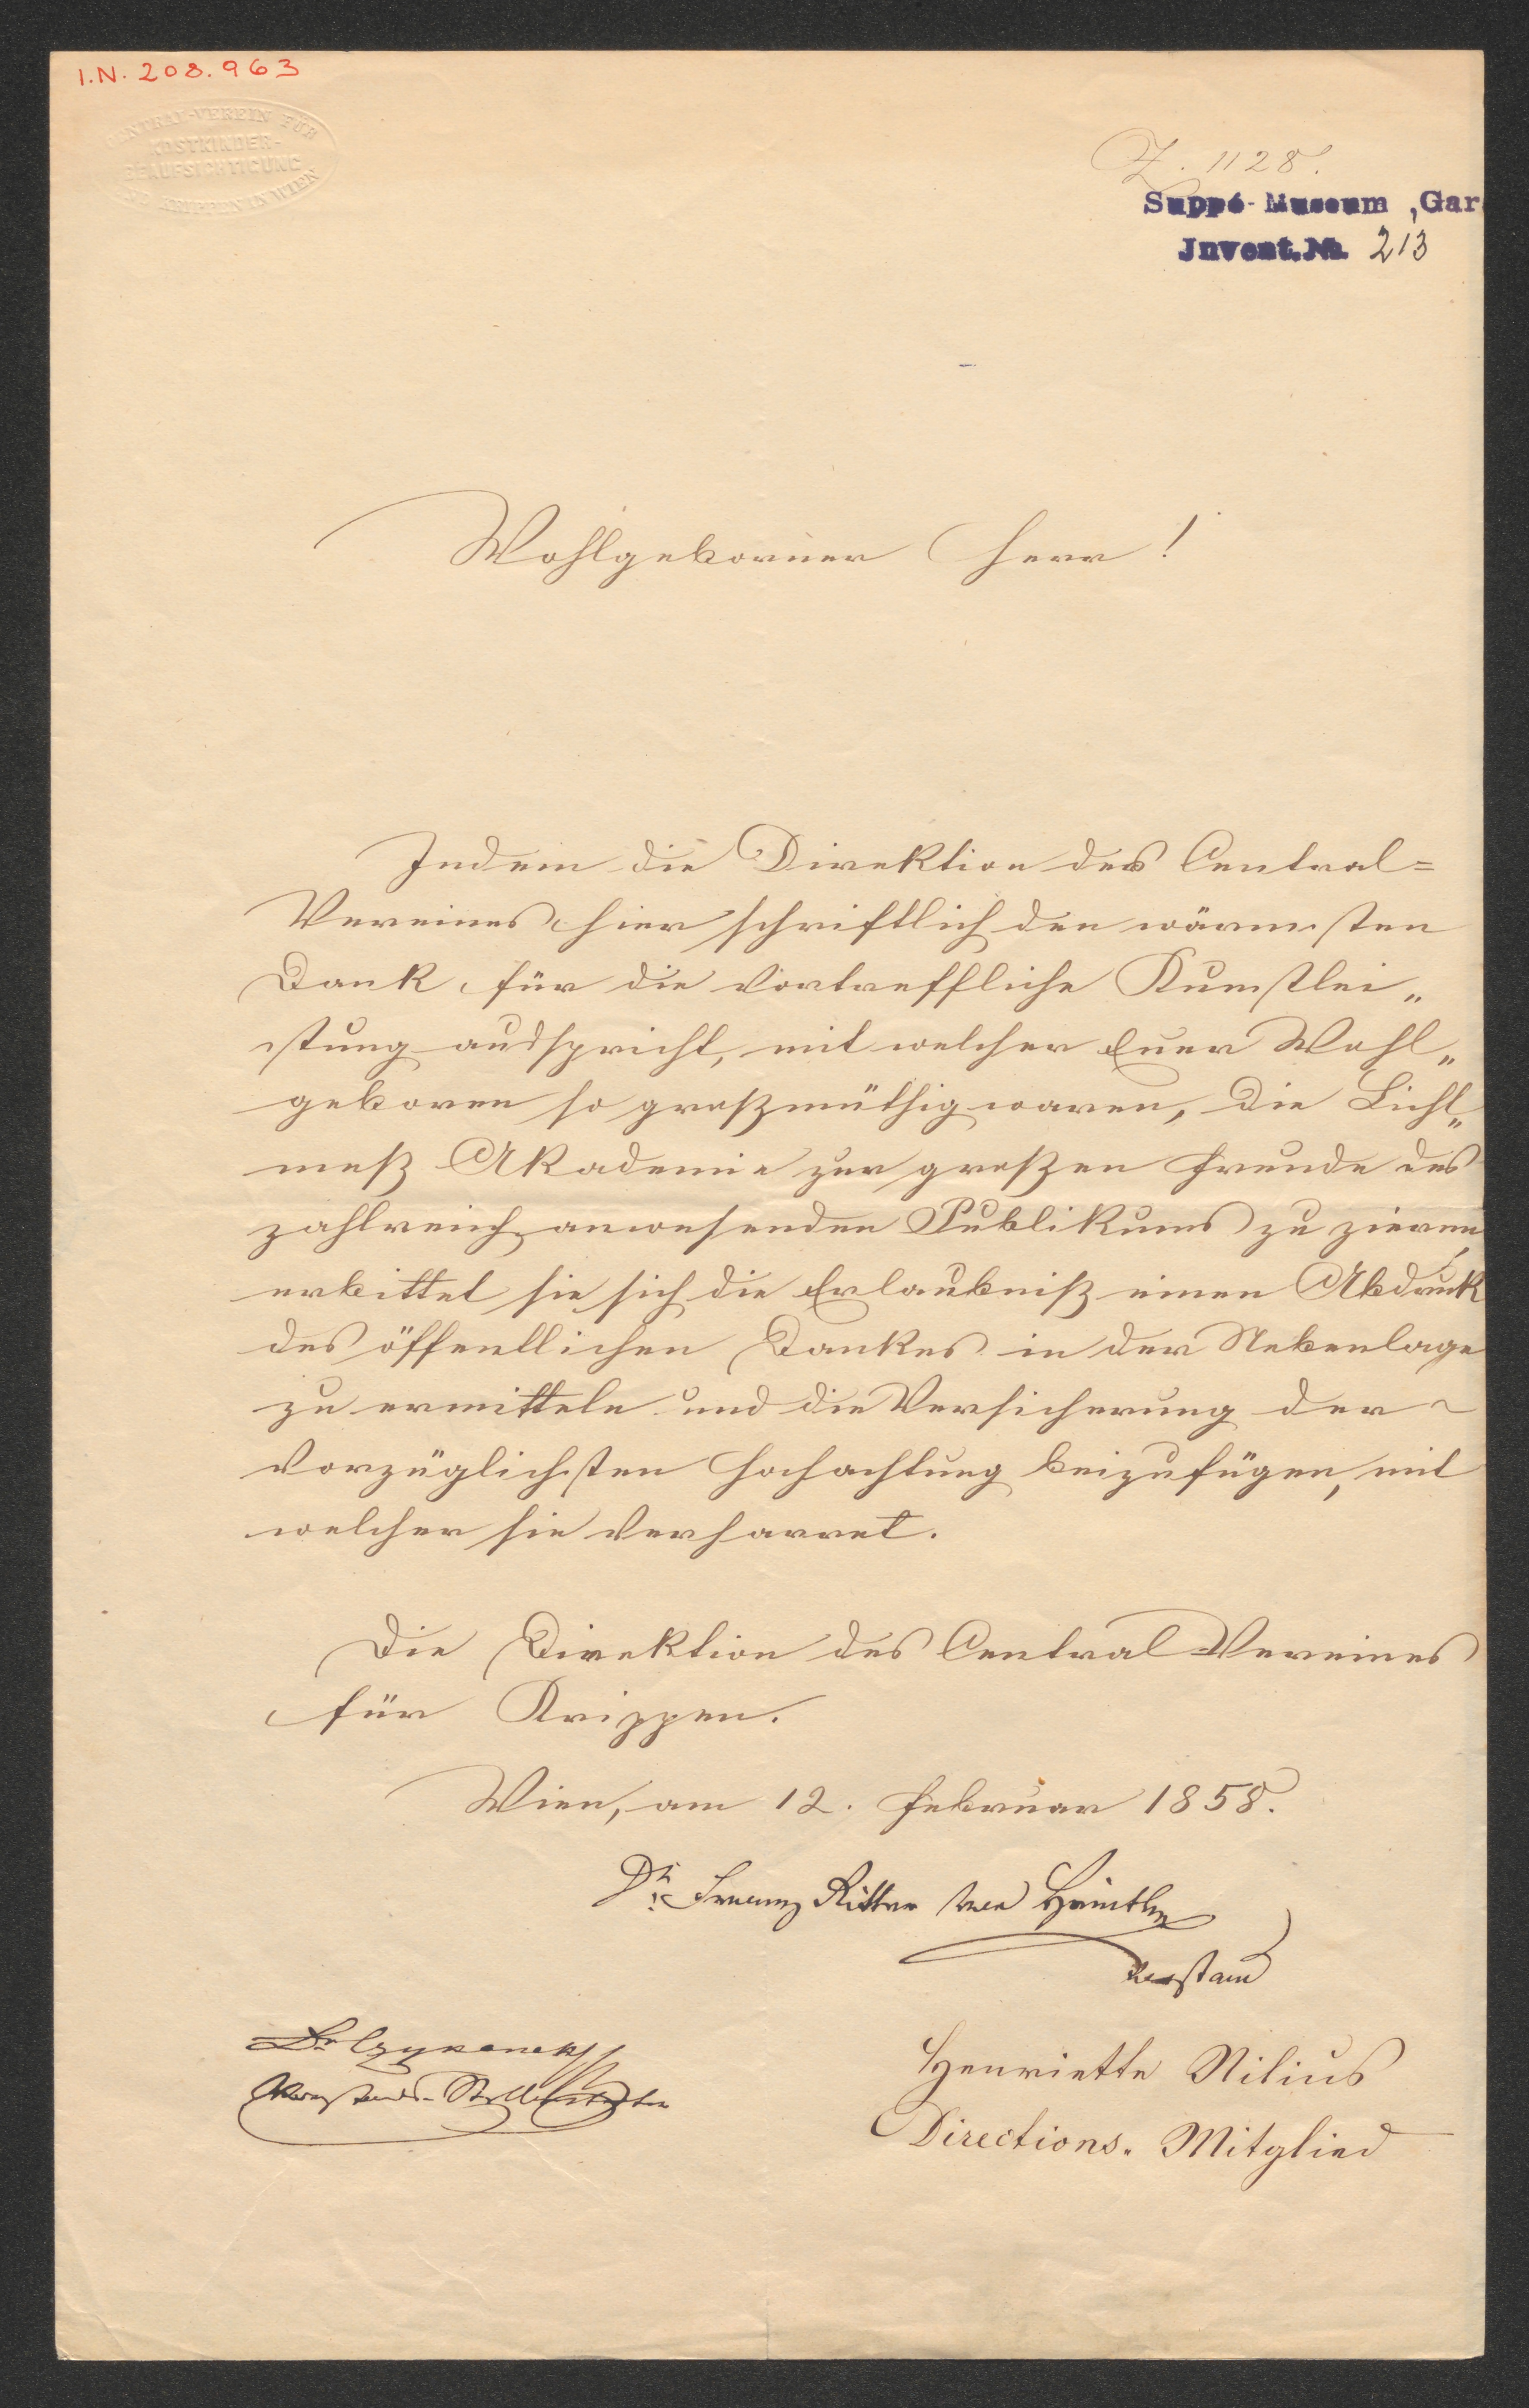 I.N. 208.963
CENTRAL-VEREIN FÜR
KOSTKINDER-
BEAUFSICHTIGUNG
UND KRIPPEN IN WIEN
Z. 1128.
Suppé-Museum, Gar
Invent.No. 213
Wohlgeborner Herr!
Indem die Direktion des Central=
Vereines hier schriftlich den wärmsten
Dank für die vortreffliche Kunstlei„
stung ausspricht, mit welcher Euer Wohl„
geboren so großmüthig waren, die Licht„
meß Akademie zur großen Freude des
zahlreich anwesenden Publikums zu zieren,
erbittet sie sich die Erlaubniß einen Abdruk
des öffentlichen Dankes in der Nebenlage
zu ermitteln und die Versicherung der
vorzüglichsten Hochachtung beizufügen, mit
welcher sie verharret.
Die Direktion des Central-Vereines
für Krippen.
Wien, am 12. Februar 1858.
Dr. Franz Ritter von
Vorstand
Dr
Vorstands-Stellvertreter
Henriette Nilius
Directions-Mitglied